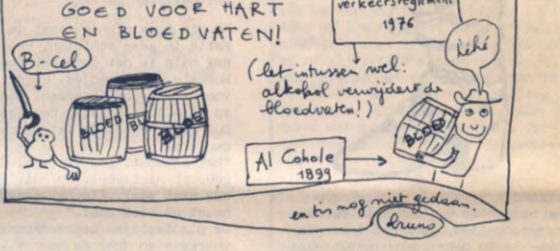 GOED VOOR HART
EN BLOEDVATEN!
verkeersreglement
1976
héhé
B-cel
(let intussen wel:
alkohol verwijdert de
bloedvaten!)
BLOED
BL
BLOED
BLOED
Al Cohole
1899
en tis nog niet gedaan.
bruno